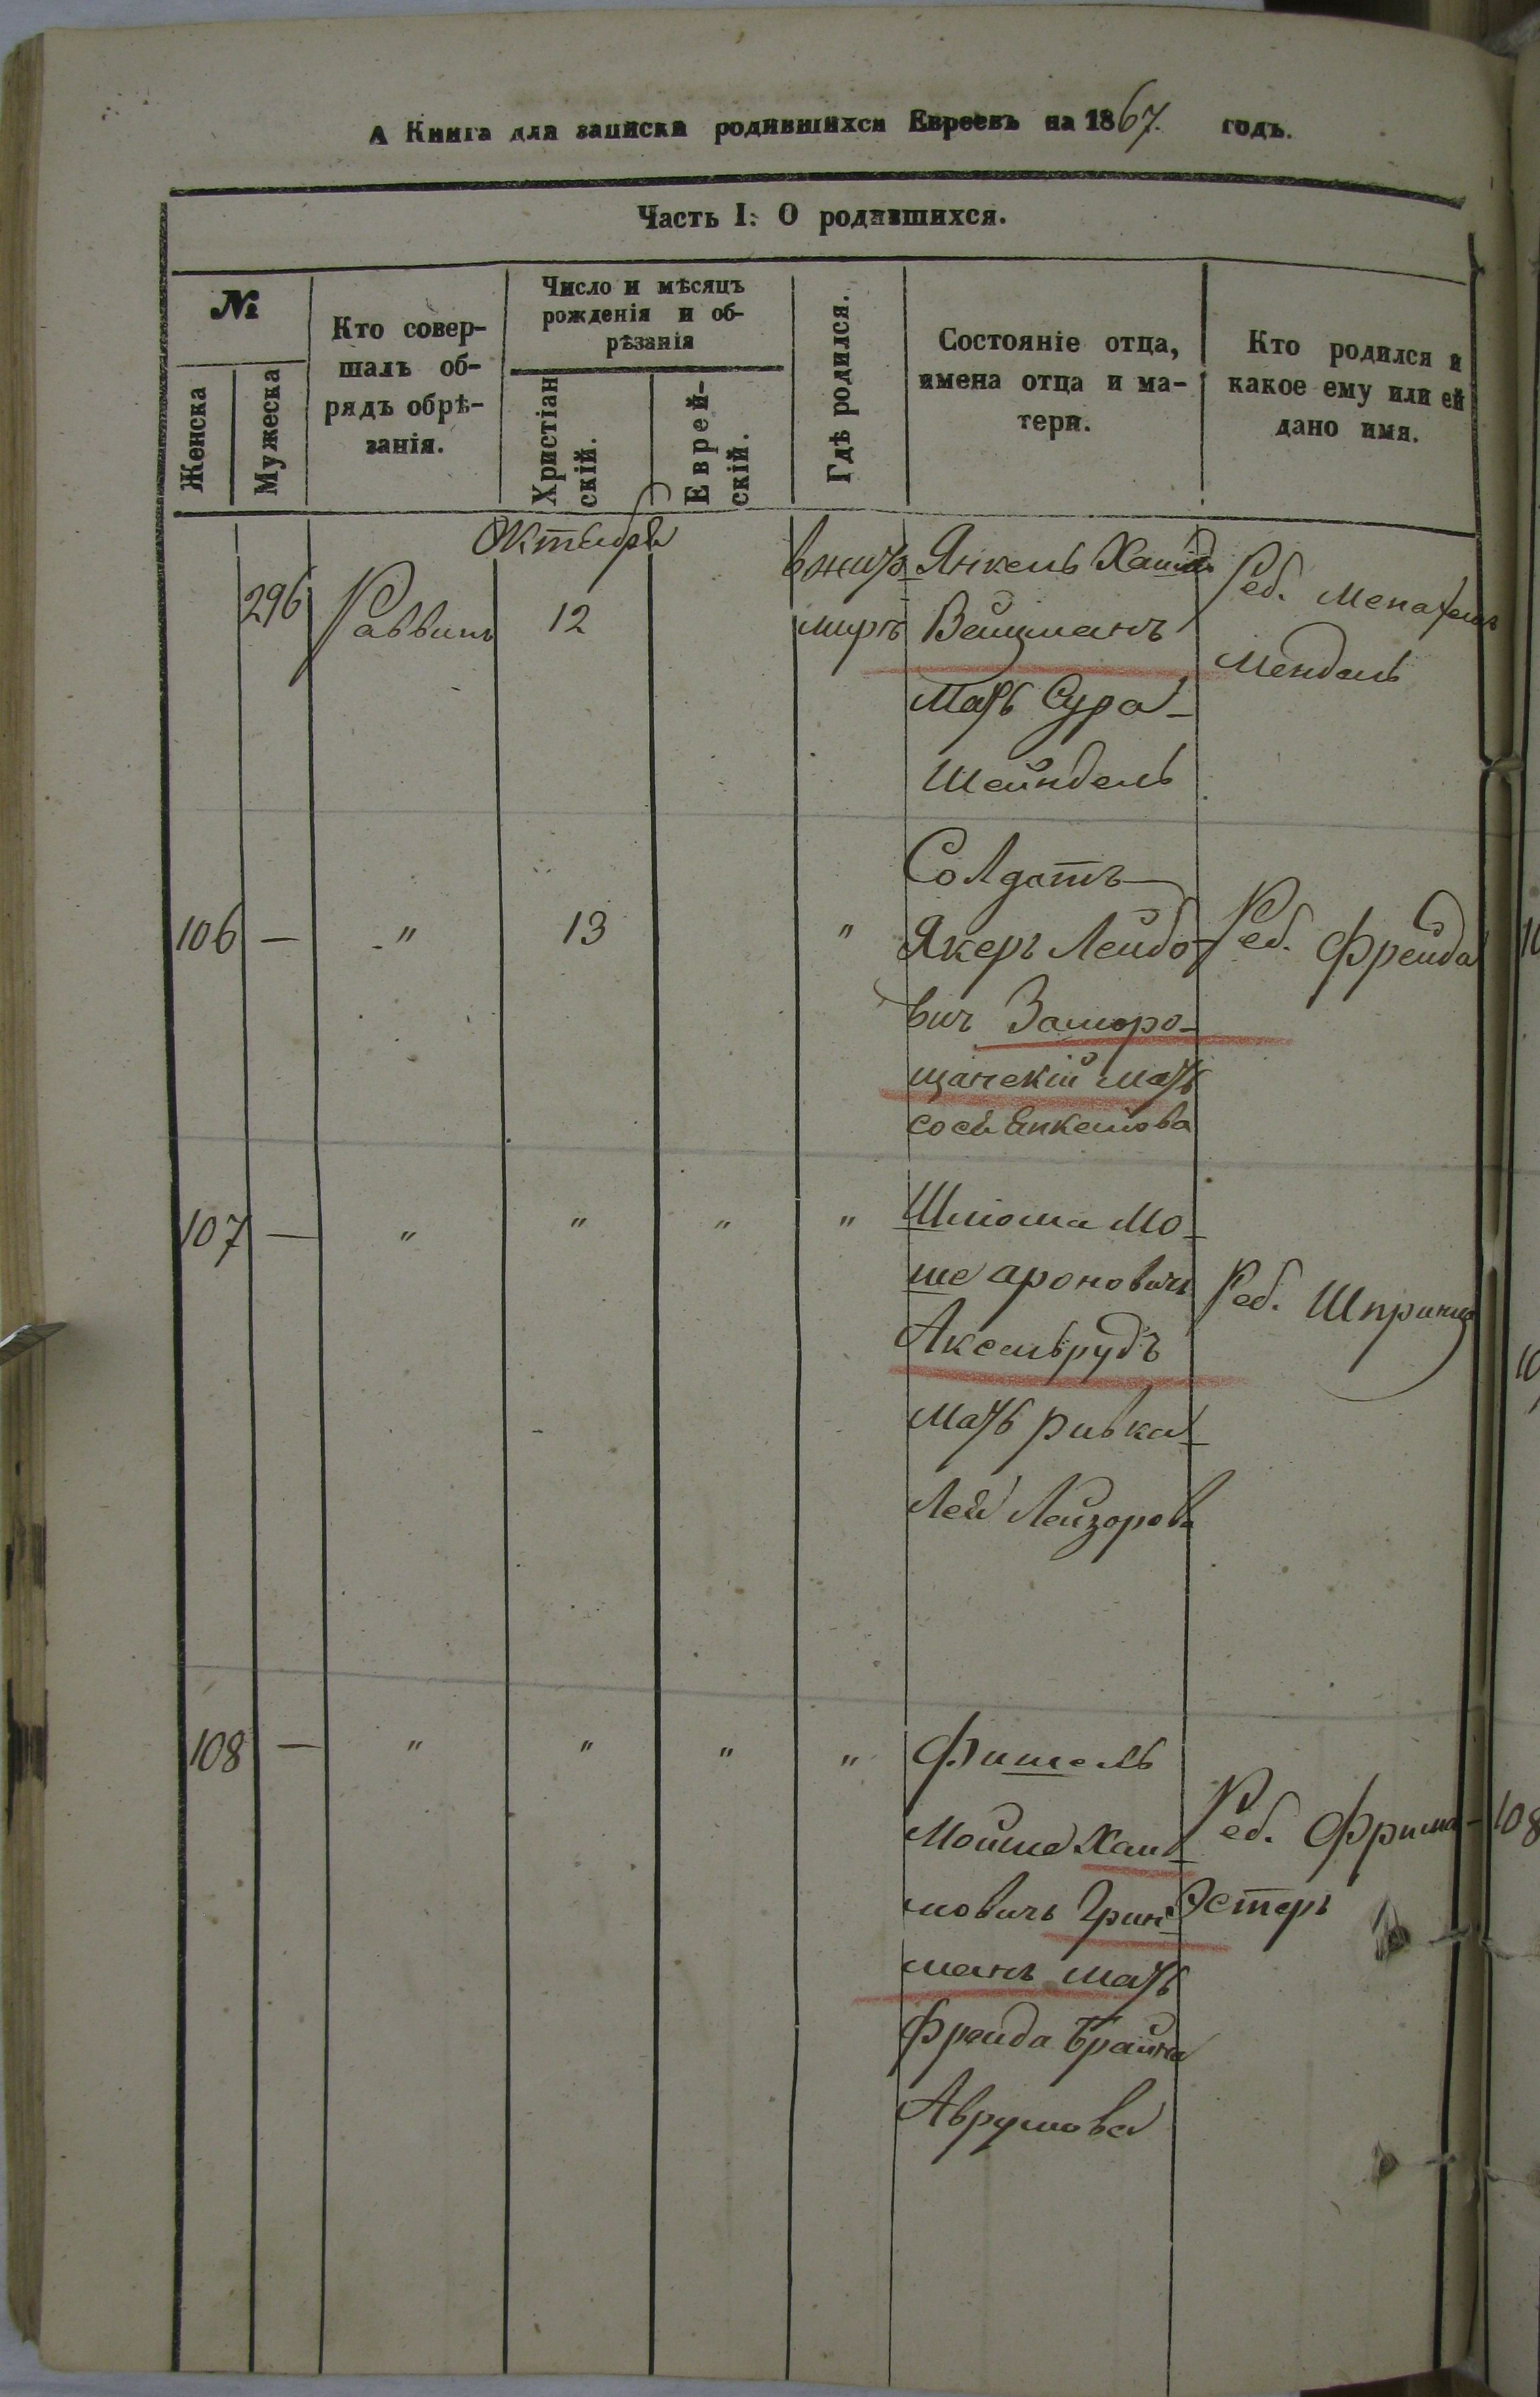 А Книга для записки родившихся Евреевъ на 1867. годъ.
Часть I. О родившихся.
№
Женска
Мужеска
Кто совер-
шалъ об-
рядъ обрѣ-
занія.
Число и мѣсяцъ
рожденія и об-
рѣзанія
Христіан
скій.
Еврей-
скій.
Гдѣ родился.
Состояніе отца,
имена отца и ма-
тери.
Кто родился и
какое ему или ей
дано имя.
Октября
296 Раввинъ 12
в жито
миръ
Янкель
Вайцманъ
Мать Сура-
Шейндель
Реб.
Мендель
106 — -" 13 "
Солдатъ
Якеръ Лейбо-
вич Заморо-
щанскій Мать
Реб. Фрейда
107 — " " " "
Шлюма Мо-
ше Ароновичъ
Аксельрудъ
Мать Ривка-
Лея Лейзорова
Реб. Шпринца
108 — " " " "
Фишель
Мойше Хаи-
мовичъ Грин-
манъ Мать
Фрейда Брайна
Аврумова
Реб. Фрима-
Эстеръ
108